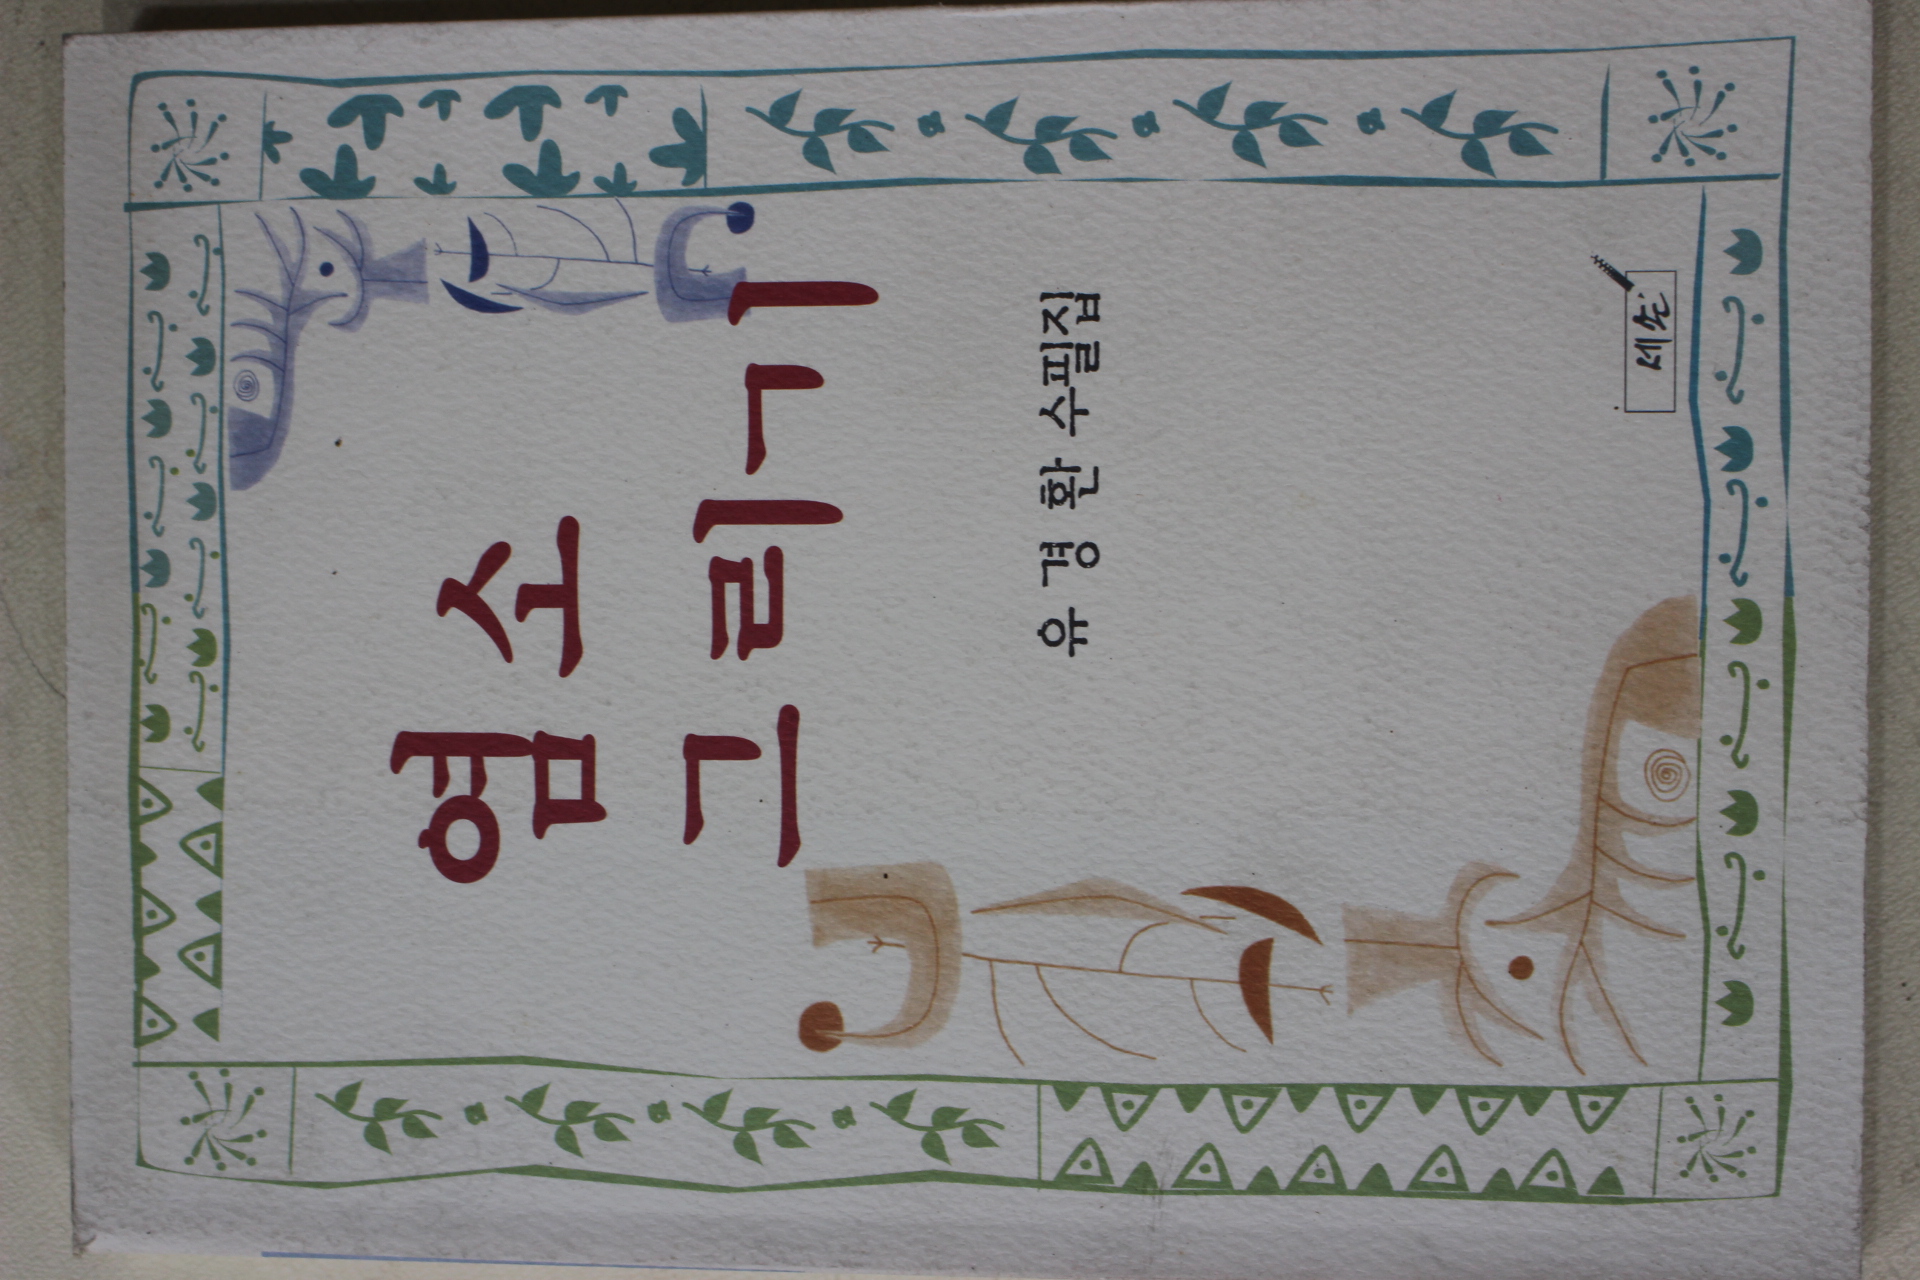 염소
그리기
유 경 환 수필집
세손